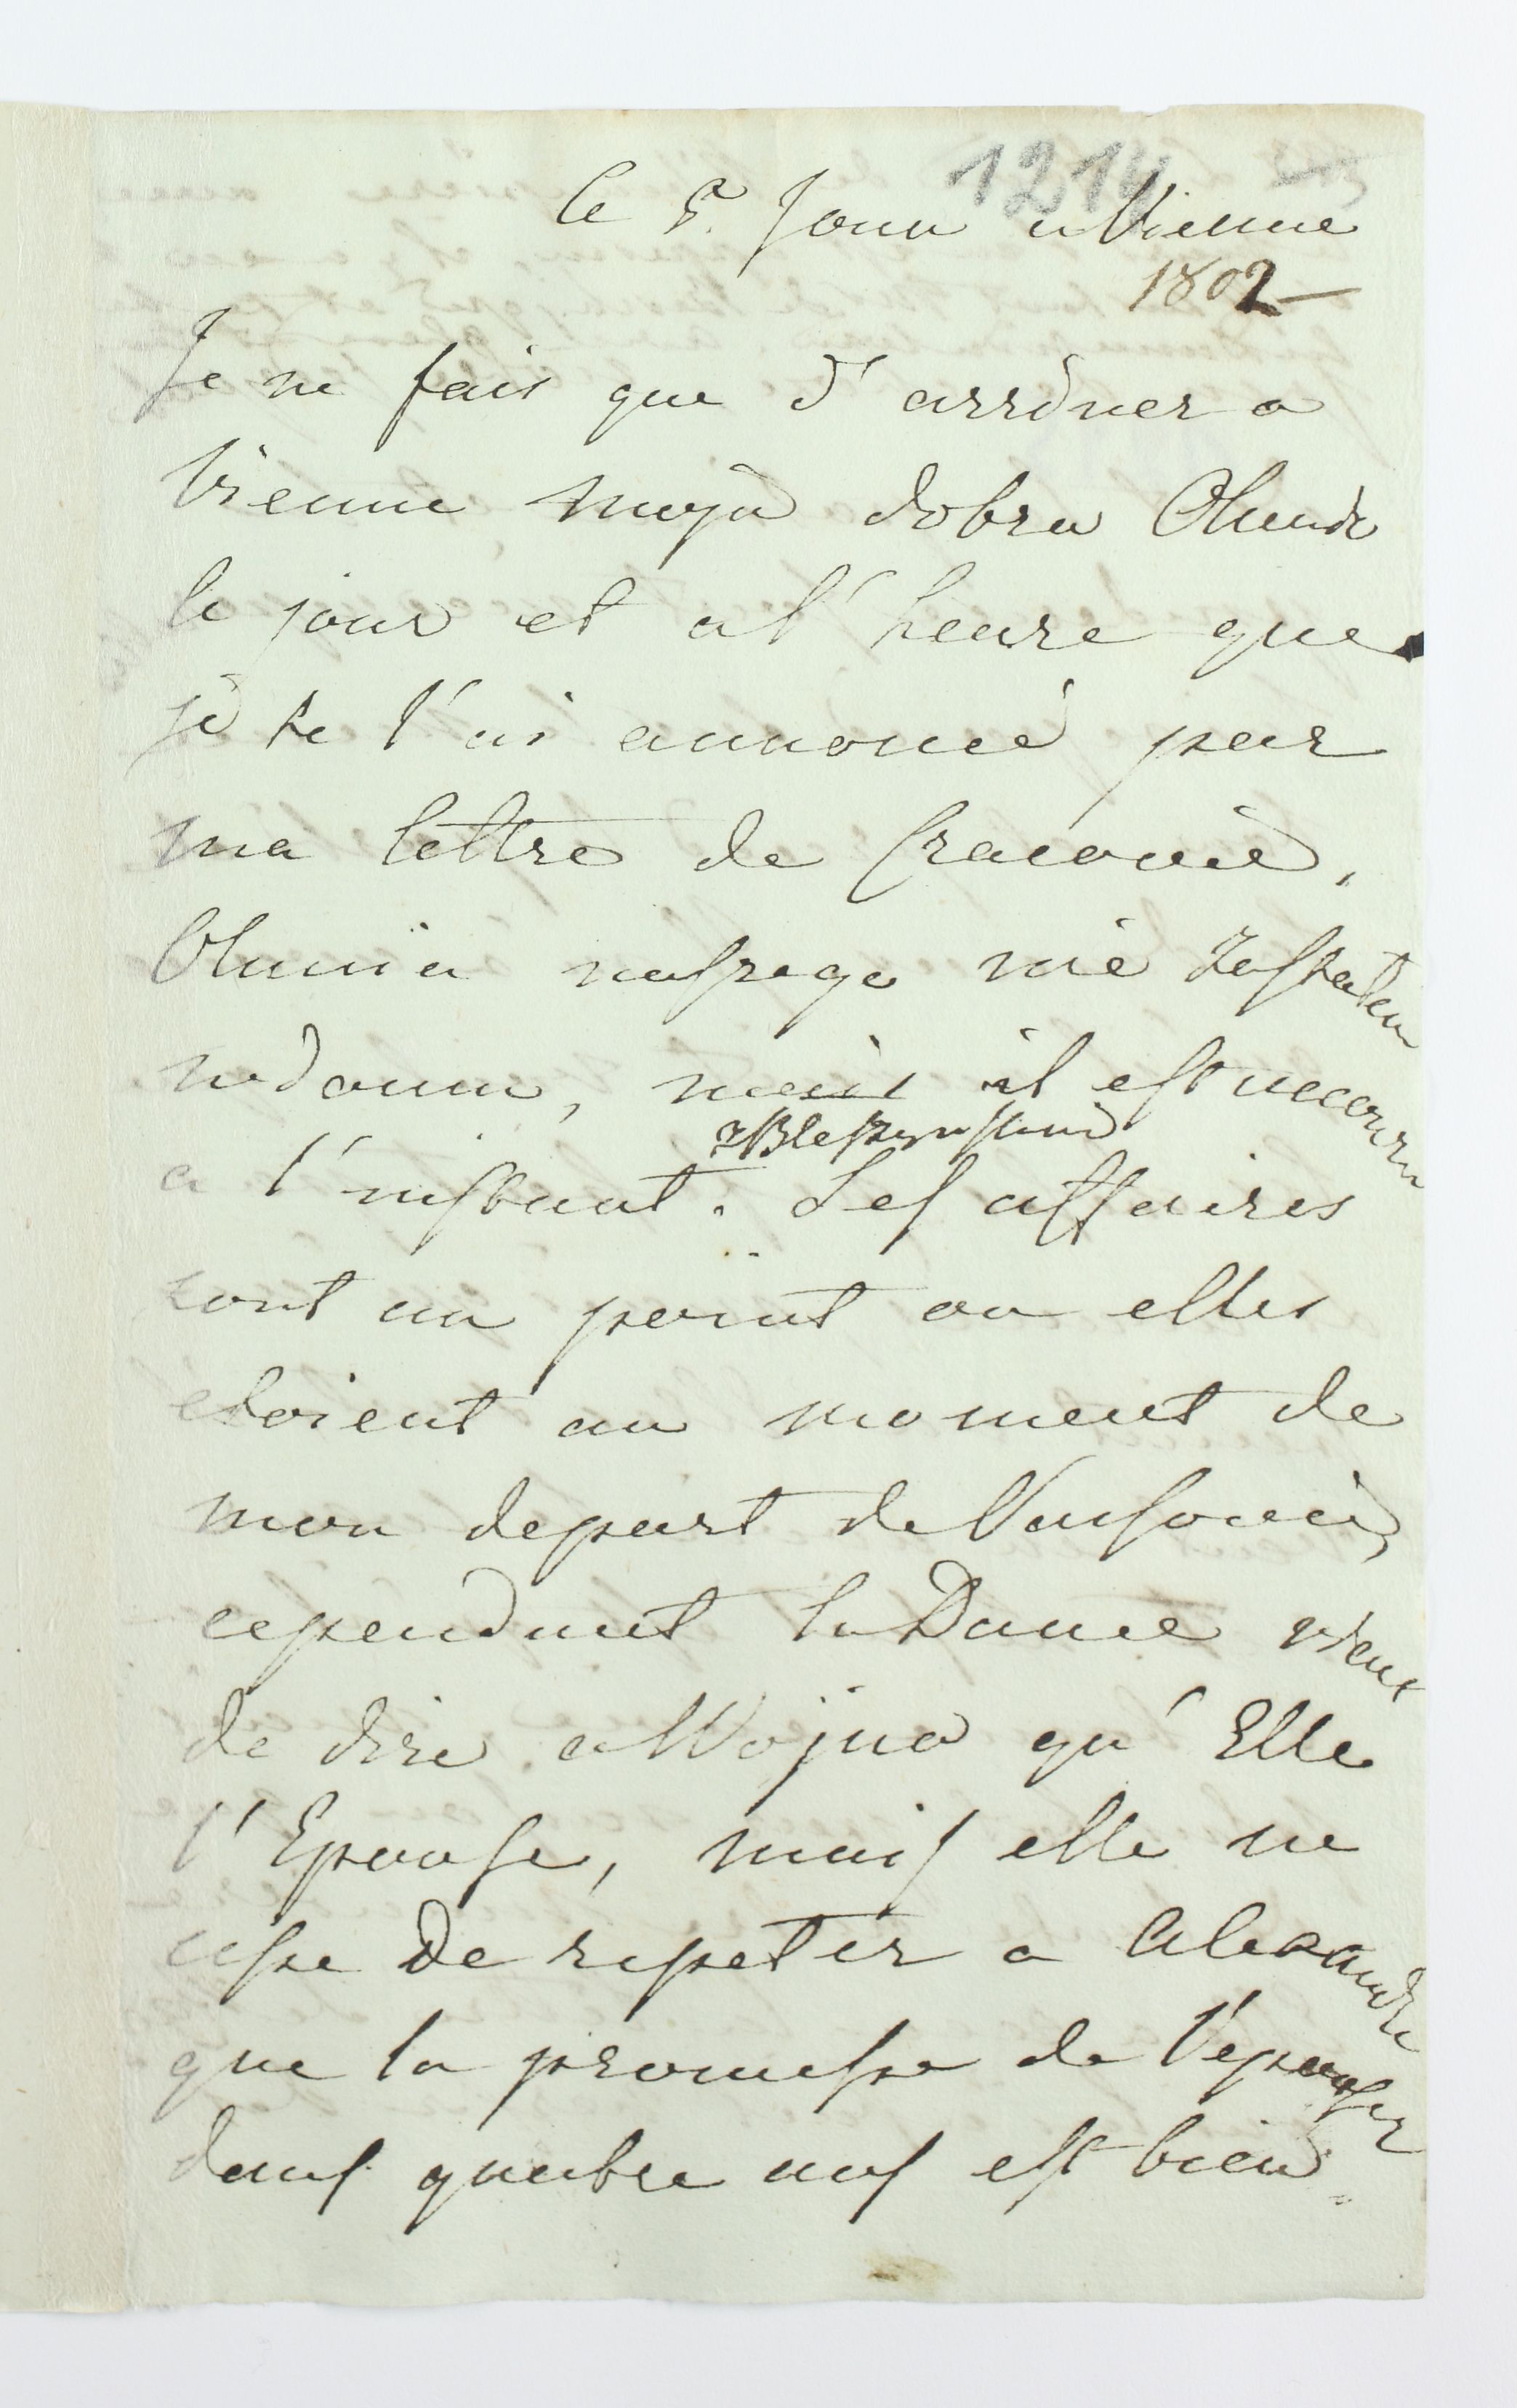 1214
le 5. Janv a Vienne
1802
Je ne fais que d'arriver a
Vienne moja dobra Olunio
le jour et a l'heure que
je te l'ai annoncé par
ma lettre de Cracovie,
Olunia nie
w domu, mais il est accouru
a l'instant. Les affaires
sont au point ou elles
etoient au moment de
mon depart de Varsovie,
cependant la Dame vient
de dire a Wojna qu'Elle
l'Epouse, mais elle ne
cesse de repeter a Alexandre
que la promesse de l'epouser
dans quatre ans est bien